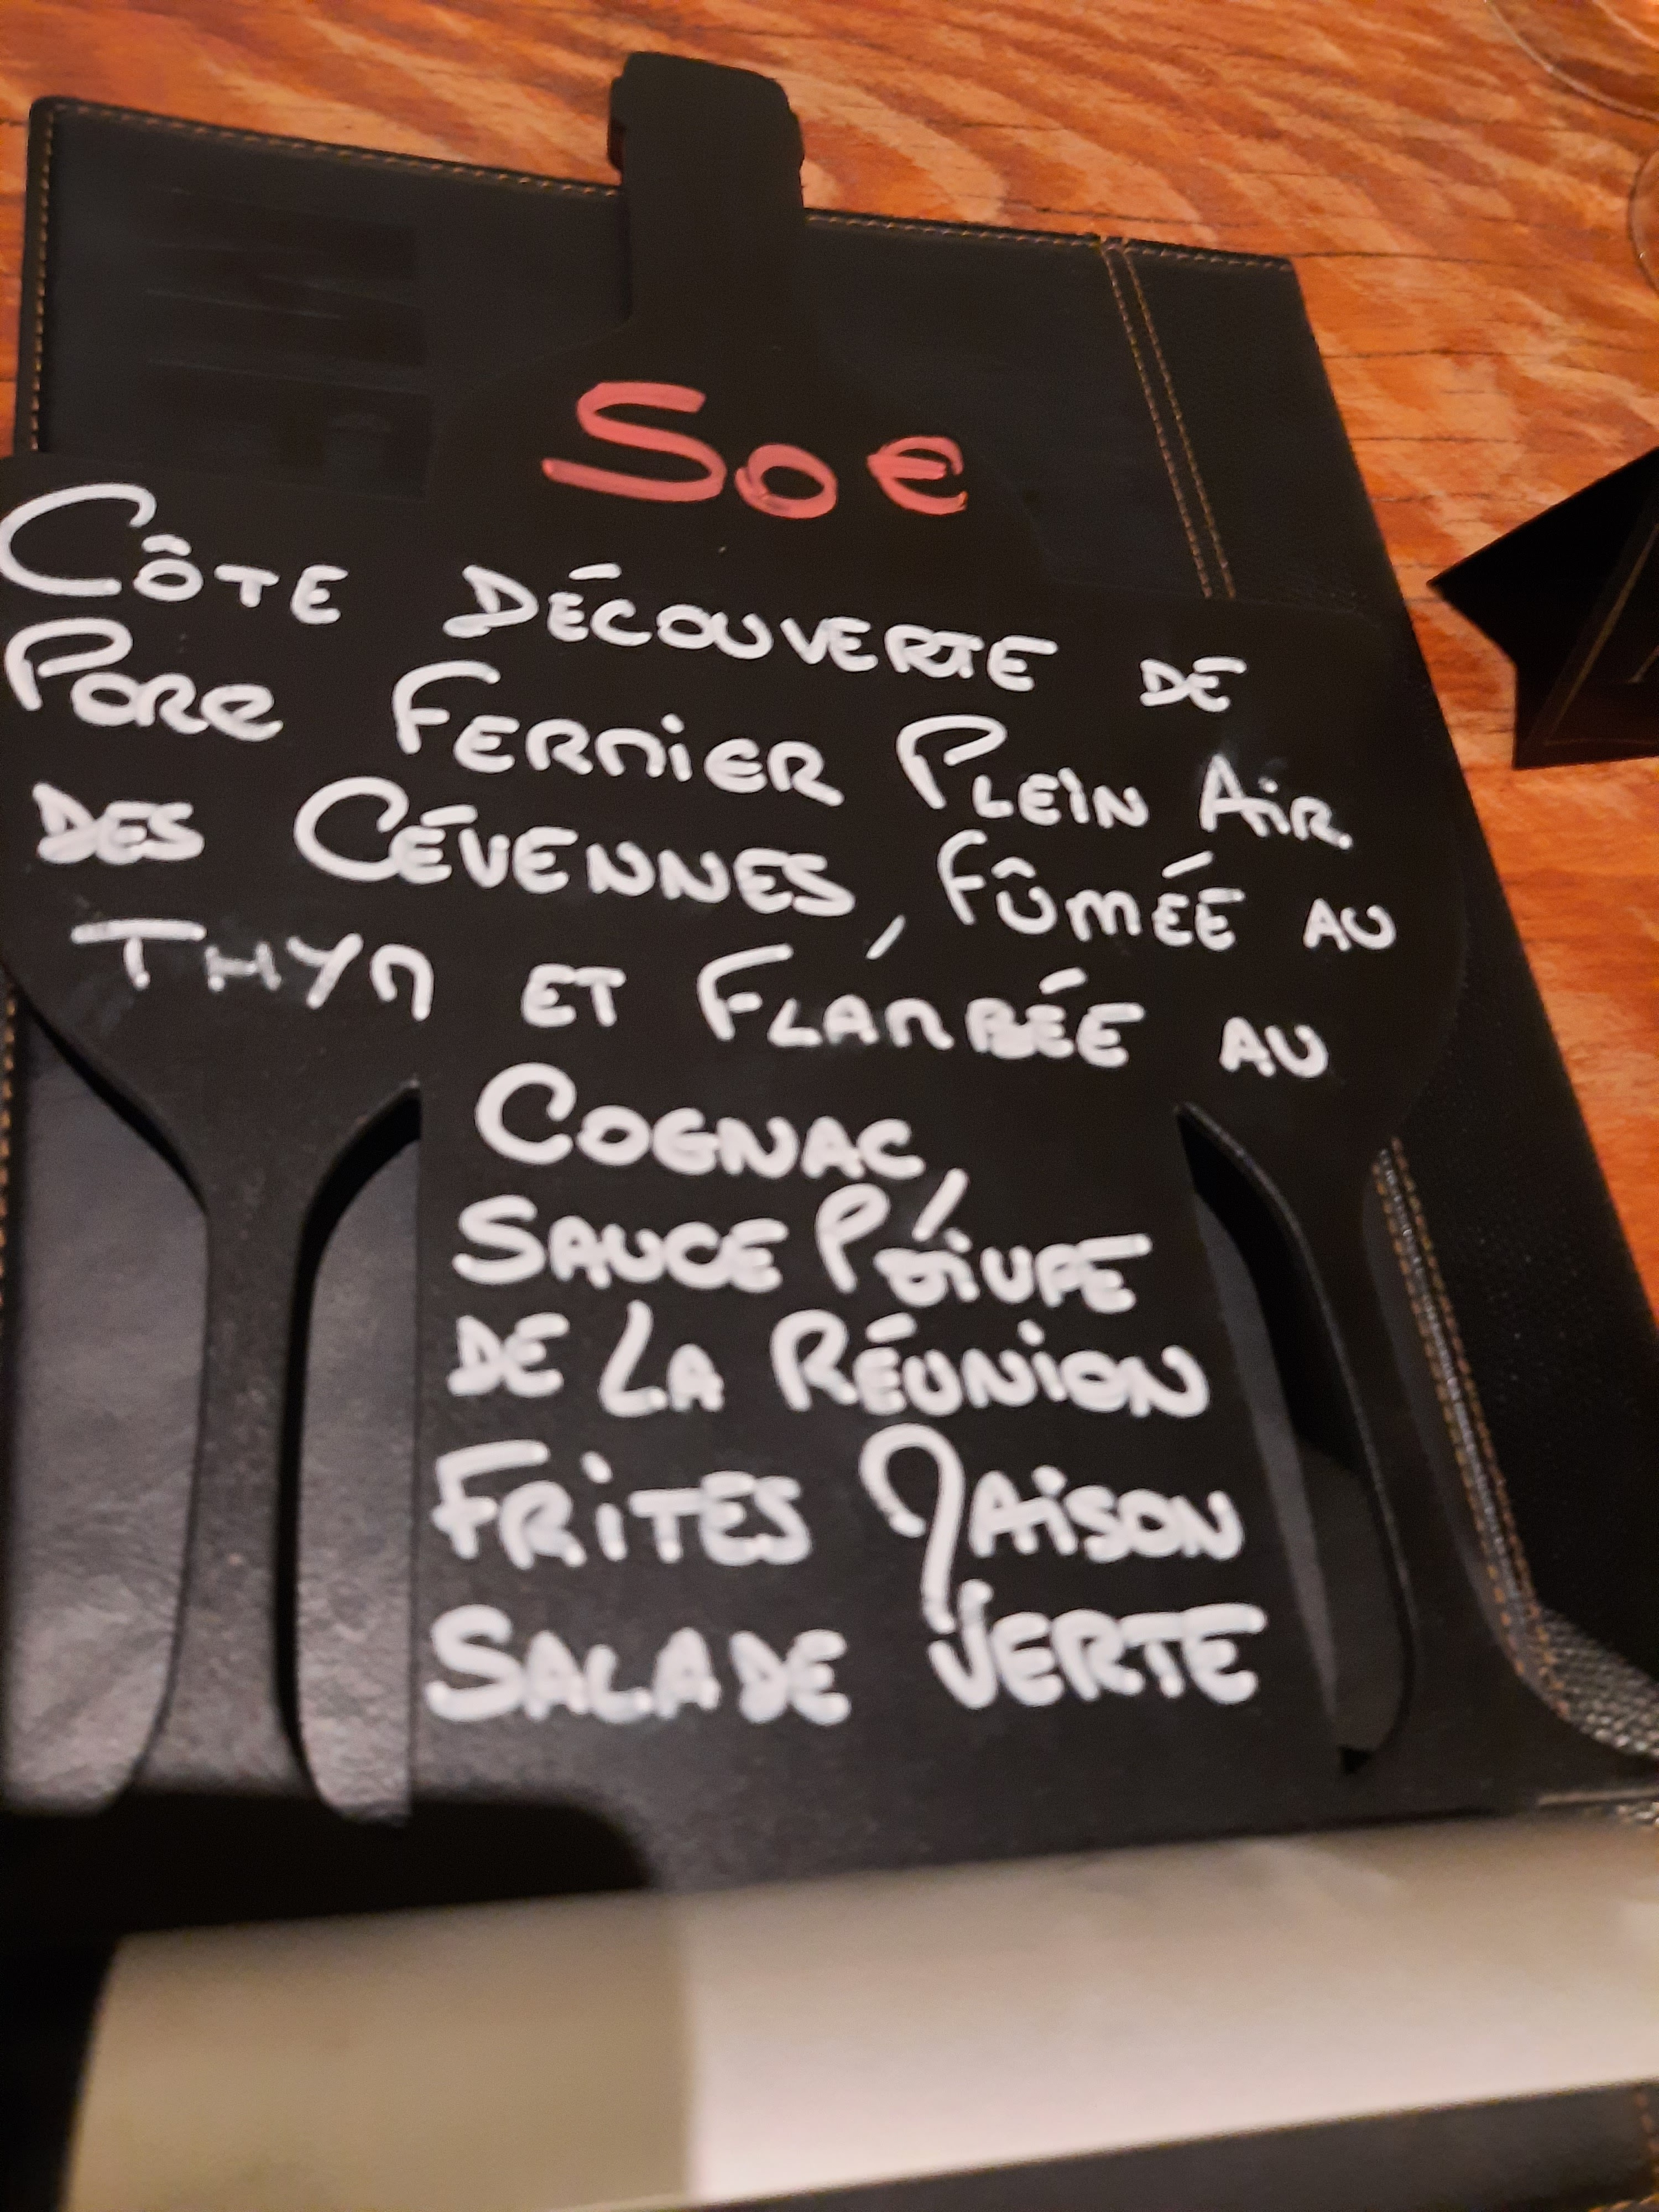 50€
CÔTE DÉCOUVERTE DE
PORC FERMIER PLEIN AIR
DES CÉVENNES, FÛMÉE AU
THYM ET FLAMBÉE AU
COGNAC,
SAUCE POIVRE
DE LA RÉUNION
FRITES MAISON
SALADE VERTE